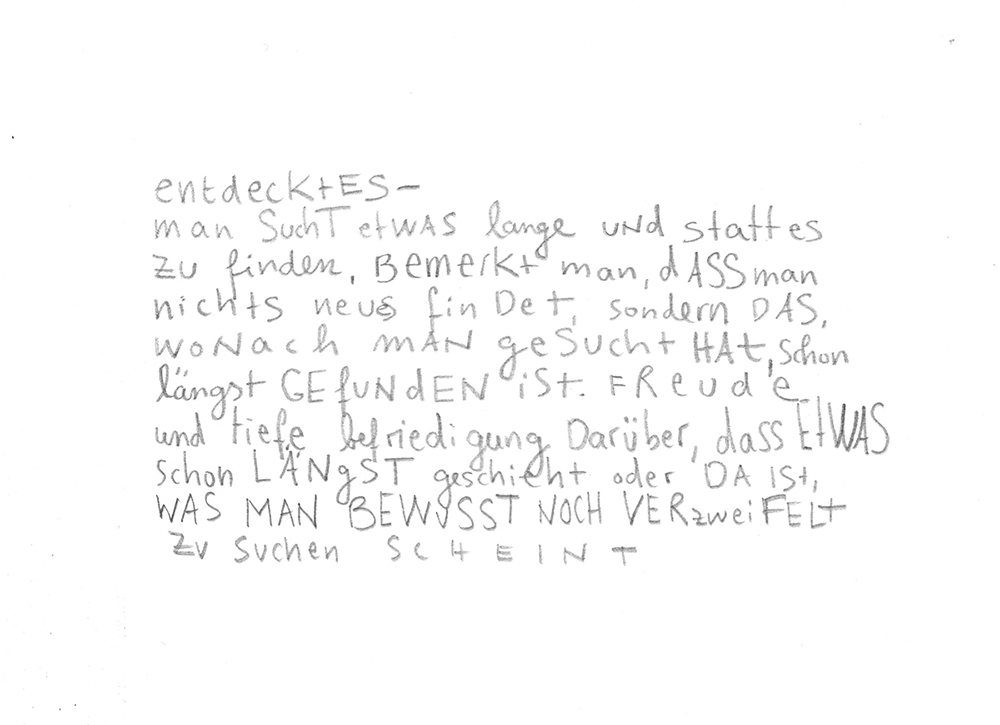 entdecktES–
man SuchT etWAS lange UNd stattes
ZU finden, BemeRkt man, dASS man
nichts neues finDet, sondern DAS,
woNach mAN geSucht HAt, schon
längst GEfUNdEN iSt. FReude
und tiefe befriedigung Darüber, dass EtWAS
schon LÄNgST geschieht oder DA ISt,
WAS MAN BEWUSST NOCH VERzweiFELt
ZU suchen SCHEINT